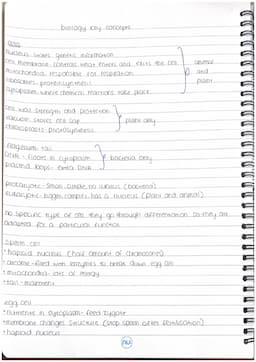 biology key concepts
cells
nucleus: stores genetic information
cell membrane: controls what enters and exits the cell
mitochondria: responsible for respiration
ribosomes: protein synthesis
cytoplasm: where chemical reactions take place
animal
and
plant
cell wall: strength and protection
vacuole: stores cell sap
chloroplasts: photosynthesis
plant only
flagellum: tail
DNA - floats in cytoplasm
plasmid loops - extra DNA
bacteria only
prokaryotic - small, simple, no nucleus (bacteria)
eukaryotic - bigger, complex, has a nucleus (plant and animal)
no specific type of cell they go through differentiation so they are
adapted for a particular function
sperm cell
• haploid nucleus (half amount of chromosomes)
• acrosome - filled with enzymes to break down egg cell
• mitochondria - lots of energy
• tail - movement
egg cell
• nutrients in cytoplasm - feed zygote
• membrane changes structure (stop sperm after fertilisation)
• haploid nucleus
nu